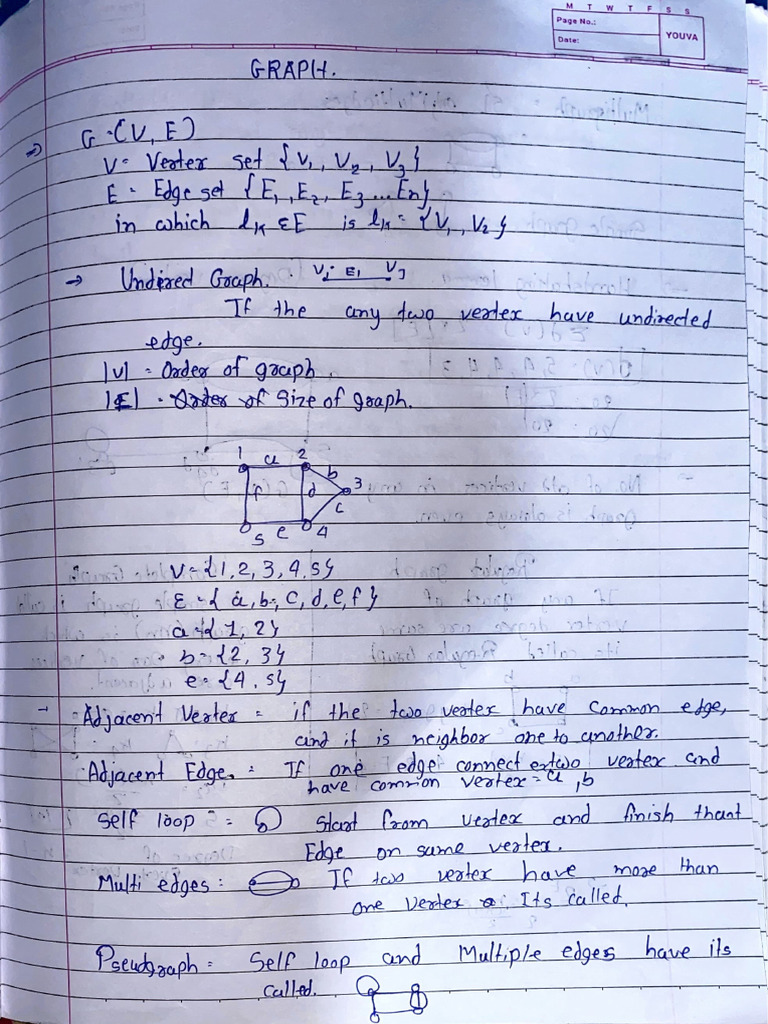 M T W T F S S
Page No.:
Date:
YOUVA
GRAPH.
→ G = (V, E)
V = Vertex set {V1, V2, V3}
E = Edge set {E1, E2, E3 ... En}
in which lk ε E is lk = {V1, V2}
→ Undired Graph.
If the any two vertex have undirected
edge.
|V| = Order of graph.
|E| = Size of graph.
1 a 2
b
f d 3
c
5 e 4
V = {1, 2, 3, 4, 5}
E = { a, b, c, d, e, f }
a = {1, 2}
b = {2, 3}
e = {4, 5}
- Adjacent Vertex = if the two vertex have common edge,
and it is neighbor one to another.
Adjacent Edge = If one edge connect two vertex and
have common vertex = a, b
Self loop = Start from vertex and finish that
Edge on same vertex.
Multi edges : If two vertex have more than
one vertex Its called.
Pseudgraph = Self loop and Multiple edges have its
called.